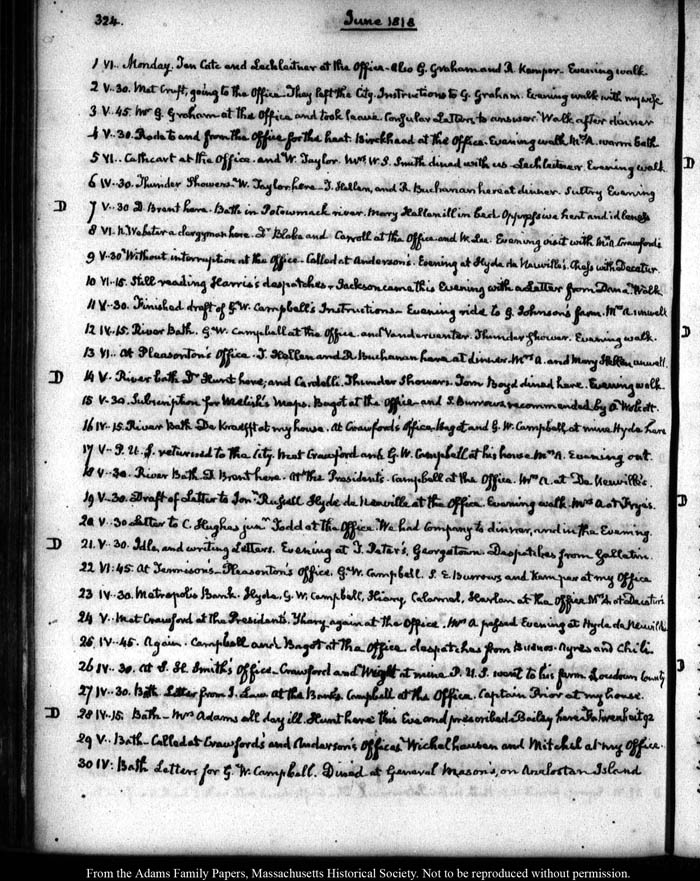 324.
June 1818
1 VI.. Monday. Ten Cate and Lechleitner at the Office. Also G. Graham and R. Kemper. Evening walk
2 V.30. Met Craft, going to the Office. They left the City. Instructions to G. Graham. Evening walk with my wife
3 V.45. Mr G. Graham at the Office and took leave. Consular Letters to answer. Walk after dinner
4 V.30. Rode to and from the Office for the heat. Birckhead at the Office. Evening walk. Mrs A. warm bath
5 VI.. Cathcart at the Office. and W. Taylor. Mrs W. S. Smith dined with us. Lechleitner. Evening walk.
6 IV.30. Thunder Showers. W. Taylor here. J. Hellen, and R. Buchanan here at dinner. Sultry Evening
D 7 V.30 D. Brent here. Bath in Potowmack river. Mary Hellen ill in bed. Oppressive heat and idleness
8 VI. N. Webster a clergyman here. Dr Blake and Carroll at the Office and W. Lee. Evening visit with Mrs A Crawford's
9 V.30 Without interruption at the Office. Called at Anderson's. Evening at Hyde de Neuville's. Chess with Decatur.
10 VI.15. Still reading Harris's despatches. Jackson came this Evening with a Letter from Dana. Walk
11 V.30. Finished draft of G. W. Campbell's Instructions. Evening ride to G. Johnson's farm. Mrs A. unwell
12 IV.15. River Bath. G. W. Campbell at the Office. and Vanderventer. Thunder shower. Evening walk.
13 VI.. At Pleasonton's Office. J. Hellen and R. Buchanan here at dinner. Mrs A. and Mary Hellen unwell.
D 14 V. River bath Dr Hunt here; and Cardelli. Thunder Showers. Tom Boyd dined here. Evening walk.
15 V.30. Subscription for Melish's Maps. Bagot at the Office and S. Burrows recommended by A. Wolcott.
16 IV.15. River Bath De Kraefft at my house. At Crawford's Office. Bagot and G. W. Campbell, at mine Hyde here
17 V.. P. U. S. returned to the City. Met Crawford and G. W. Campbell at his house Mrs A. Evening out.
18 V.30. River Bath D Brent here. At the President's. Campbell at the Office. Mrs A. at De Neuville's.
19 V.30. Draft of Letter to Jonn Russell Hyde de Neuville at the Office. Evening walk. Mrs A at Frye's.
20 V.30 Letter to C. Hughes junr Todd at the Office. We had Company to dinner, and in the Evening.
D 21. V.30. Idle, and writing Letters. Evening at T. Peter's, Georgetown. Despatches from Gallatin.
22 VI:45. At Tennison's. Pleasonton's Office. G. W. Campbell. S. E. Burrows and at my Office
23 IV.30. Metropolis Bank. Hyde. G. W. Campbell, Colomel, Harlan at the Office. Mrs A. at Decatur's
24 V.. Met Crawford at the President's. again at the Office. Mrs A passed Evening at Hyde de Neuville's
25 IV.45. Again. Campbell and Bagot at the Office. despatches from Buenos-Ayres and Chili
26 IV.30. At S. H. Smith's Office. Crawford and Wright at mine P. U. S. went to his farm Loudoun County
27 IV.30. Bath Letter from J. Law. At the Bank. Campbell at the Office. Captain Prior at my house.
D 28 IV.15. Bath. Mrs Adams all day ill. Hunt here this Eve and prescribed. Bailey here. Fahrenheit 92
29 V.. Bath. Called at Crawford's and Anderson's Offices Wichelhausen and Mitchel at my Office.
30 IV: Bath Letters for G. W. Campbell. Dined at General Mason's, on Analostan Island
D
D
D
D
From the Adams Family Papers, Massachusetts Historical Society. Not to be reproduced without permission.